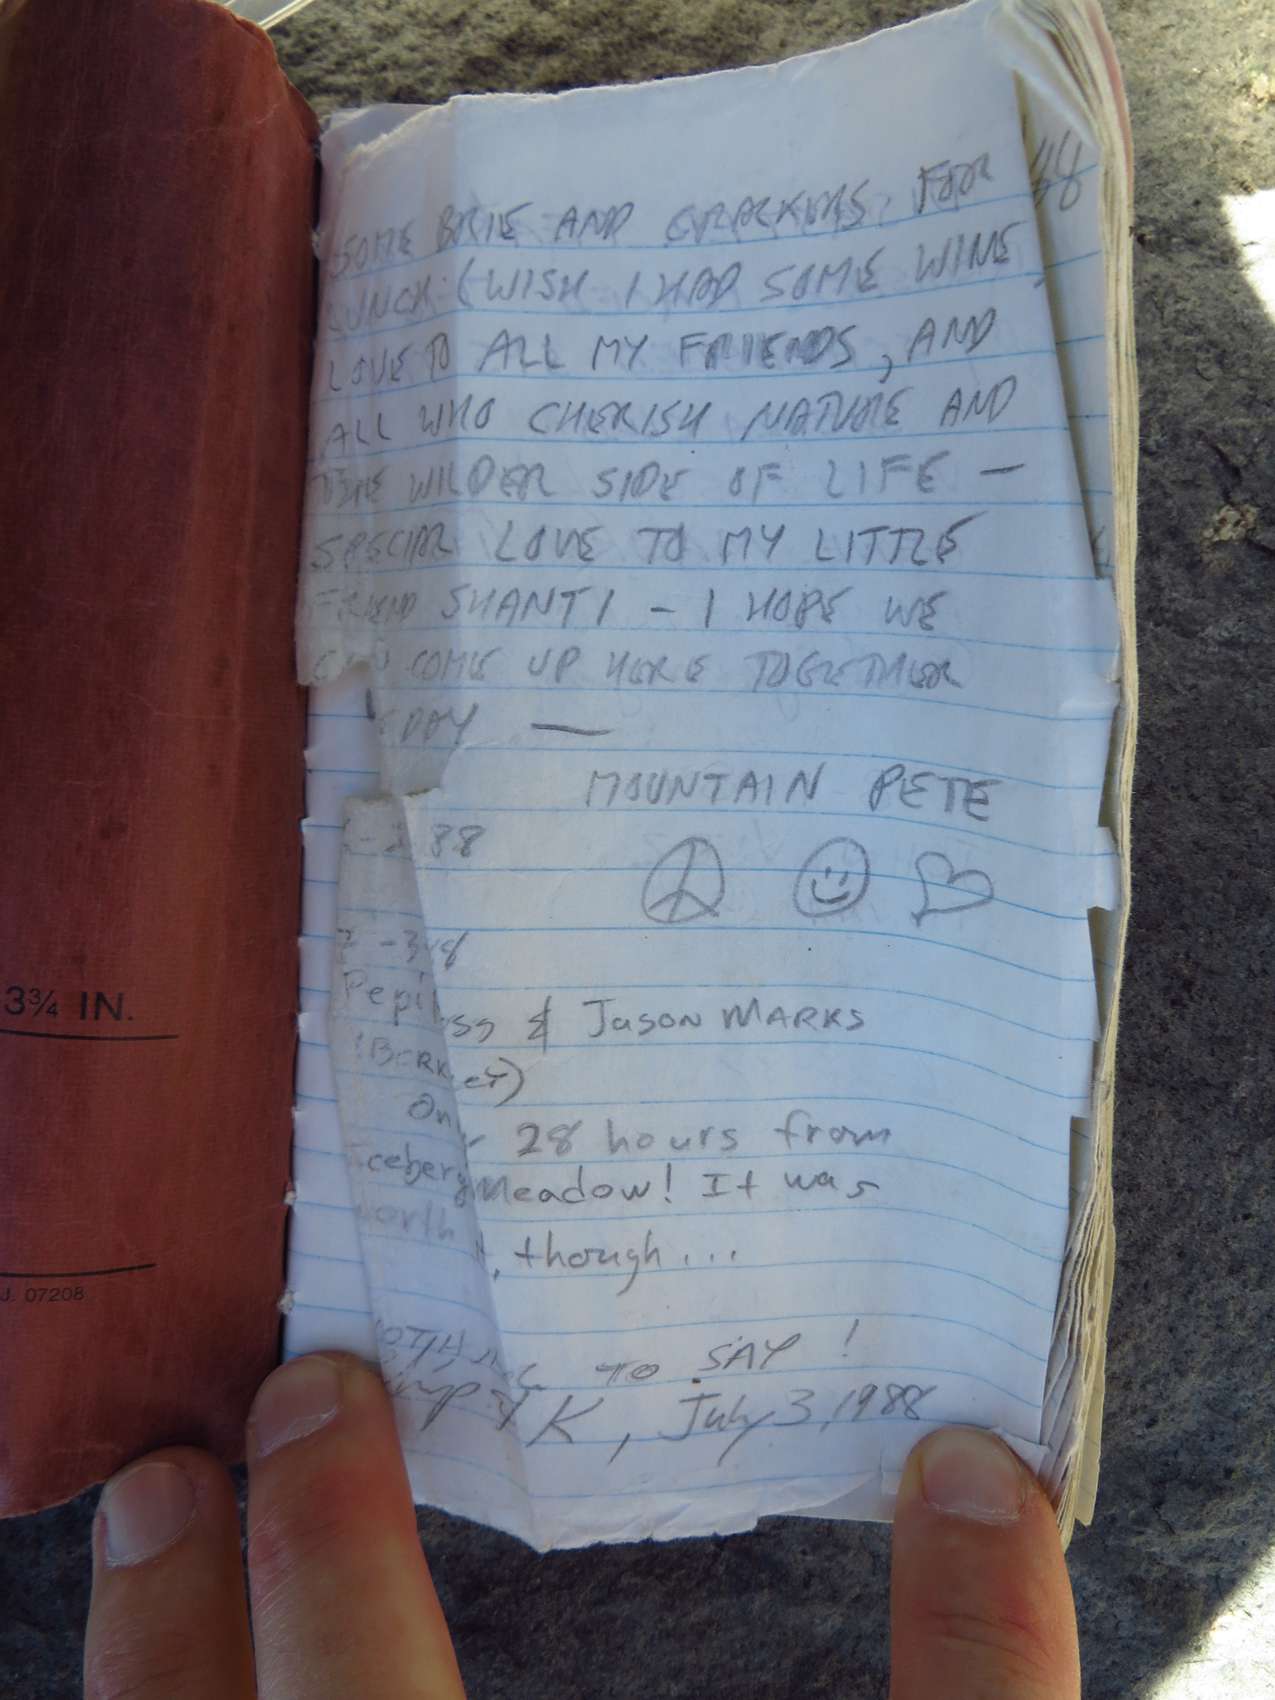 SOME BRIE AND CRACKERS FOR
LUNCH (WISH I HAD SOME WINE)
LOVE TO ALL MY FRIENDS, AND
ALL WHO CHERISH NATURE AND
THE WILDER SIDE OF LIFE —
SPECIAL LOVE TO MY LITTLE
FRIEND SHANTI — I HOPE WE
COME UP HERE TOGETHER
EDAY —
MOUNTAIN PETE
88
& JASON MARKS
28 hours from
Iceberg Meadow! It was
worth it, though...
TO SAY!
K, July 3, 1988
3¾ IN.
J. 07208